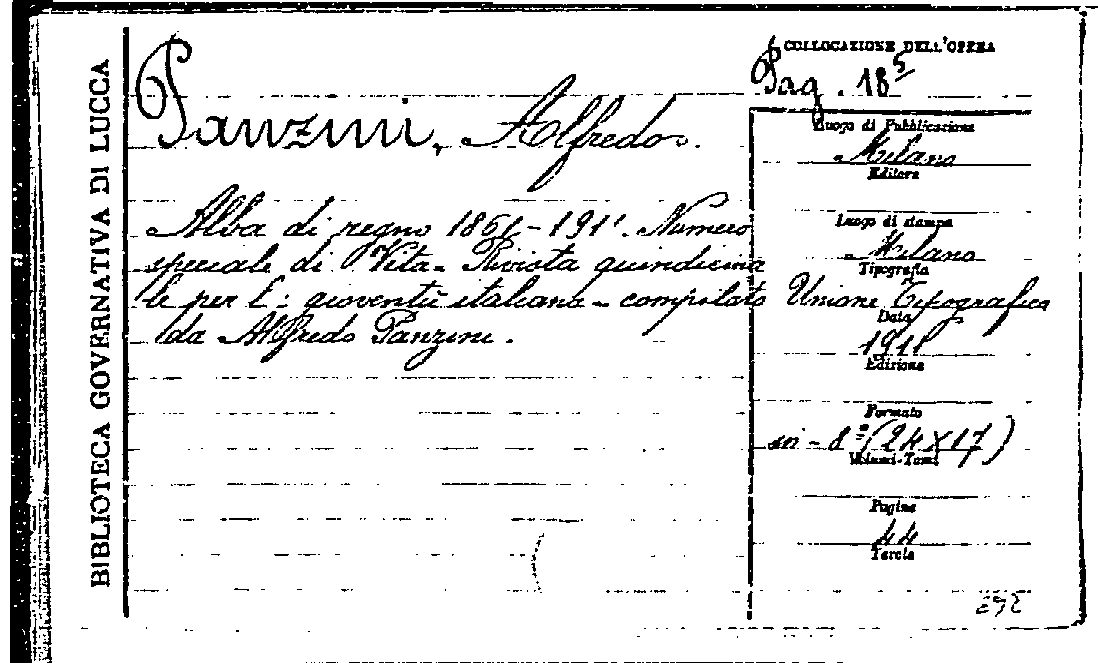 BIBLIOTECA GOVERNATIVA DI LUCCA
Panzini, Alfredo.
Alba di regno 1861-1911. Numero
speciale di Vita - Rivista quindicina
le per l: gioventù italiana - compilato
da Alfredo Panzini.
COLLOCAZIONE DELL'OPERA
Pag. 18⁵
Luogo di Pubblicazione
Milano
Editore
Luogo di stampa
Milano
Tipografia
Unione Tipografica
Data
1911
Edizione
Formato
in-8º (24×17)
Volumi-Tomi
Pagine
44
Tavole